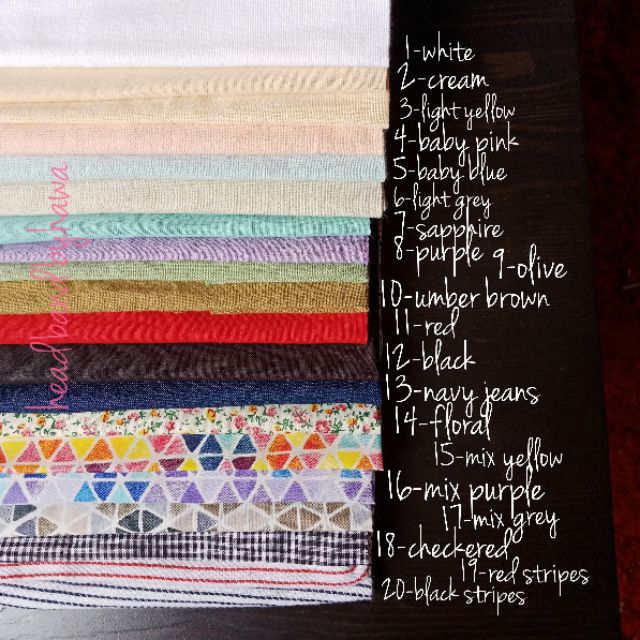 1-white
2-cream
3-light yellow
4-baby pink
5-baby blue
6-light grey
7-sapphire
8-purple
9-olive
10-umber brown
11-red
12-black
13-navy jeans
14-floral
15-mix yellow
16-mix purple
17-mix grey
18-checkered
19-red stripes
20-black stripes
headbandbyhawa